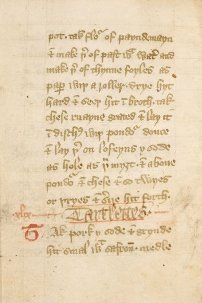 pot. tak floꝰ of payndemayn
& make þꝰ of past wᵗ watꝰ and
make þꝰ of thynne foyles as
papꝰ wiþ a roller. drye hyt
hard & seeþ hit ī broth. tak
chese ruayne grated & lay it
ī disch wiþ powdoꝰ douce
& lay þꝰ on loseyns y sode
as hole as þᵘ myȝt. & aboue
powdoꝰ & chese & so twyes
or þryes & sꝰue hit forth.
xlix
Tartletes
Tak pork y sode & grynde
hit smal wᵗ safron. medle